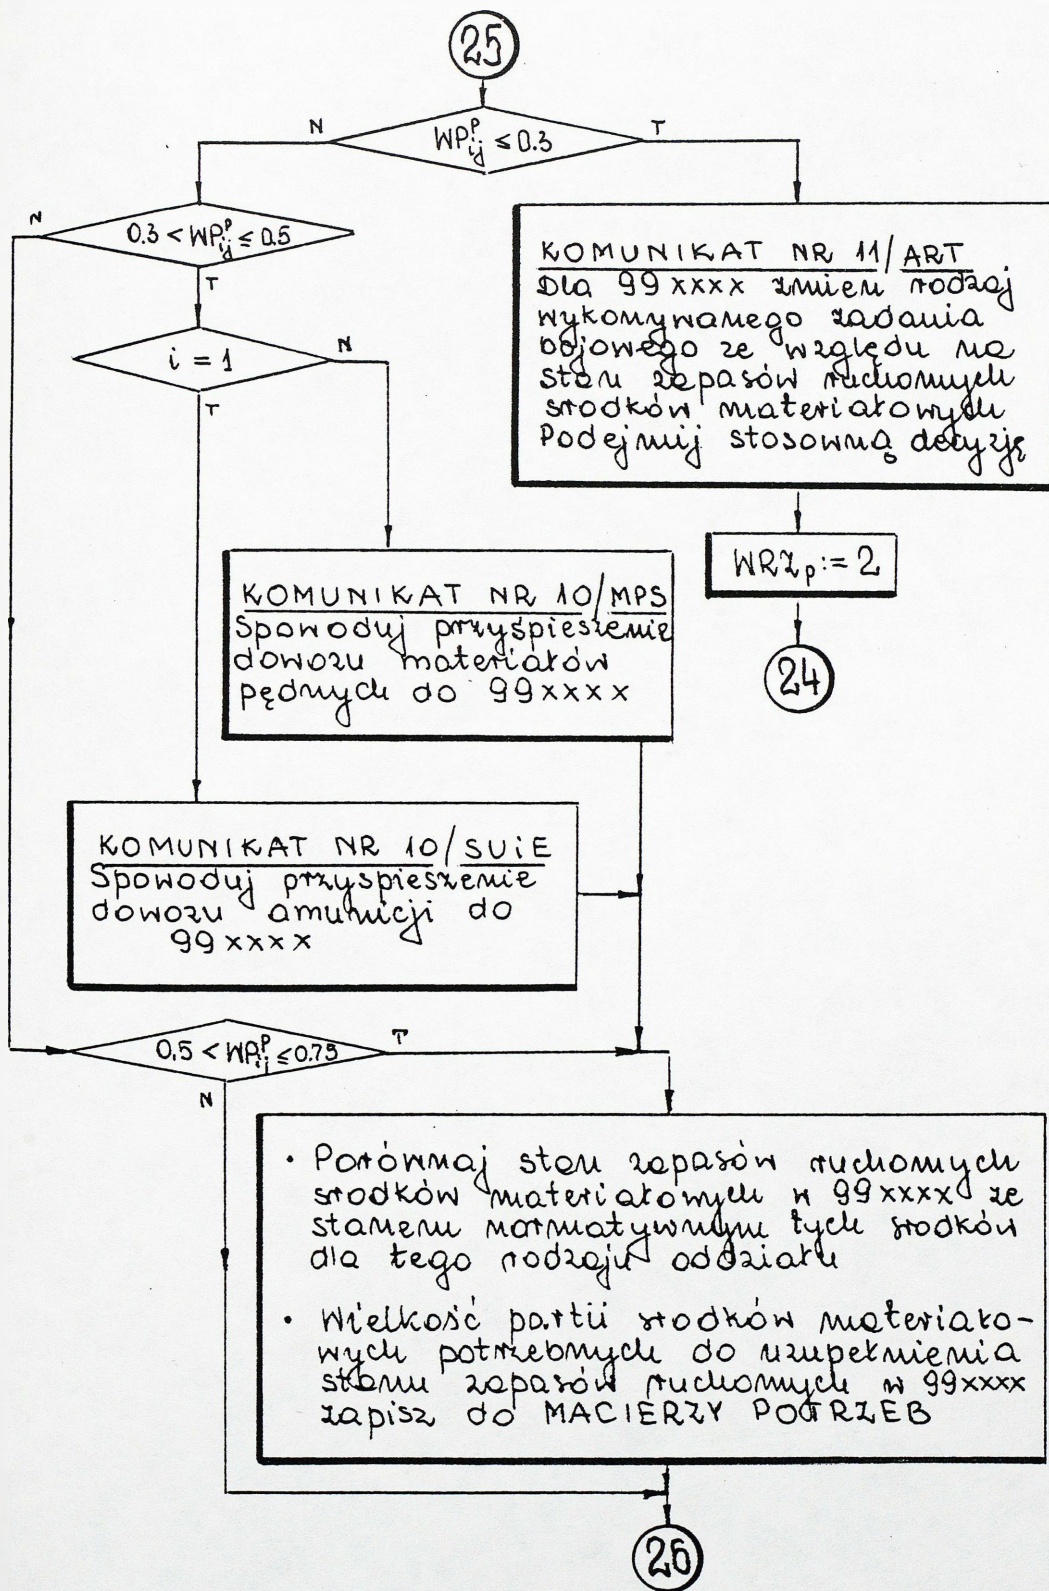 25
WP^p_ij ≤ 0.3
N
T
0.3 < WP^p_ij ≤ 0.5
N
T
KOMUNIKAT NR 11/ART
Dla 99xxxx zmień rodzaj
wykonywanego zadania
bojowego ze względu na
stan zapasów ruchomych
środków materiałowych
Podejmij stosowną decyzję
i = 1
N
T
WRZ_p := 2
24
KOMUNIKAT NR 10/MPS
Spowoduj przyśpieszenie
dowozu materiałów
pędnych do 99xxxx
KOMUNIKAT NR 10/SUiE
Spowoduj przyspieszenie
dowozu amunicji do
99xxxx
0.5 < WP^p_ij ≤ 0.75
T
N
• Porównaj stan zapasów ruchomych
środków materiałowych w 99xxxx ze
stanem normatywnym tych środków
dla tego rodzaju oddziału
• Wielkość partii środków materiało-
wych potrzebnych do uzupełnienia
stanu zapasów ruchomych w 99xxxx
zapisz do MACIERZY POTRZEB
26